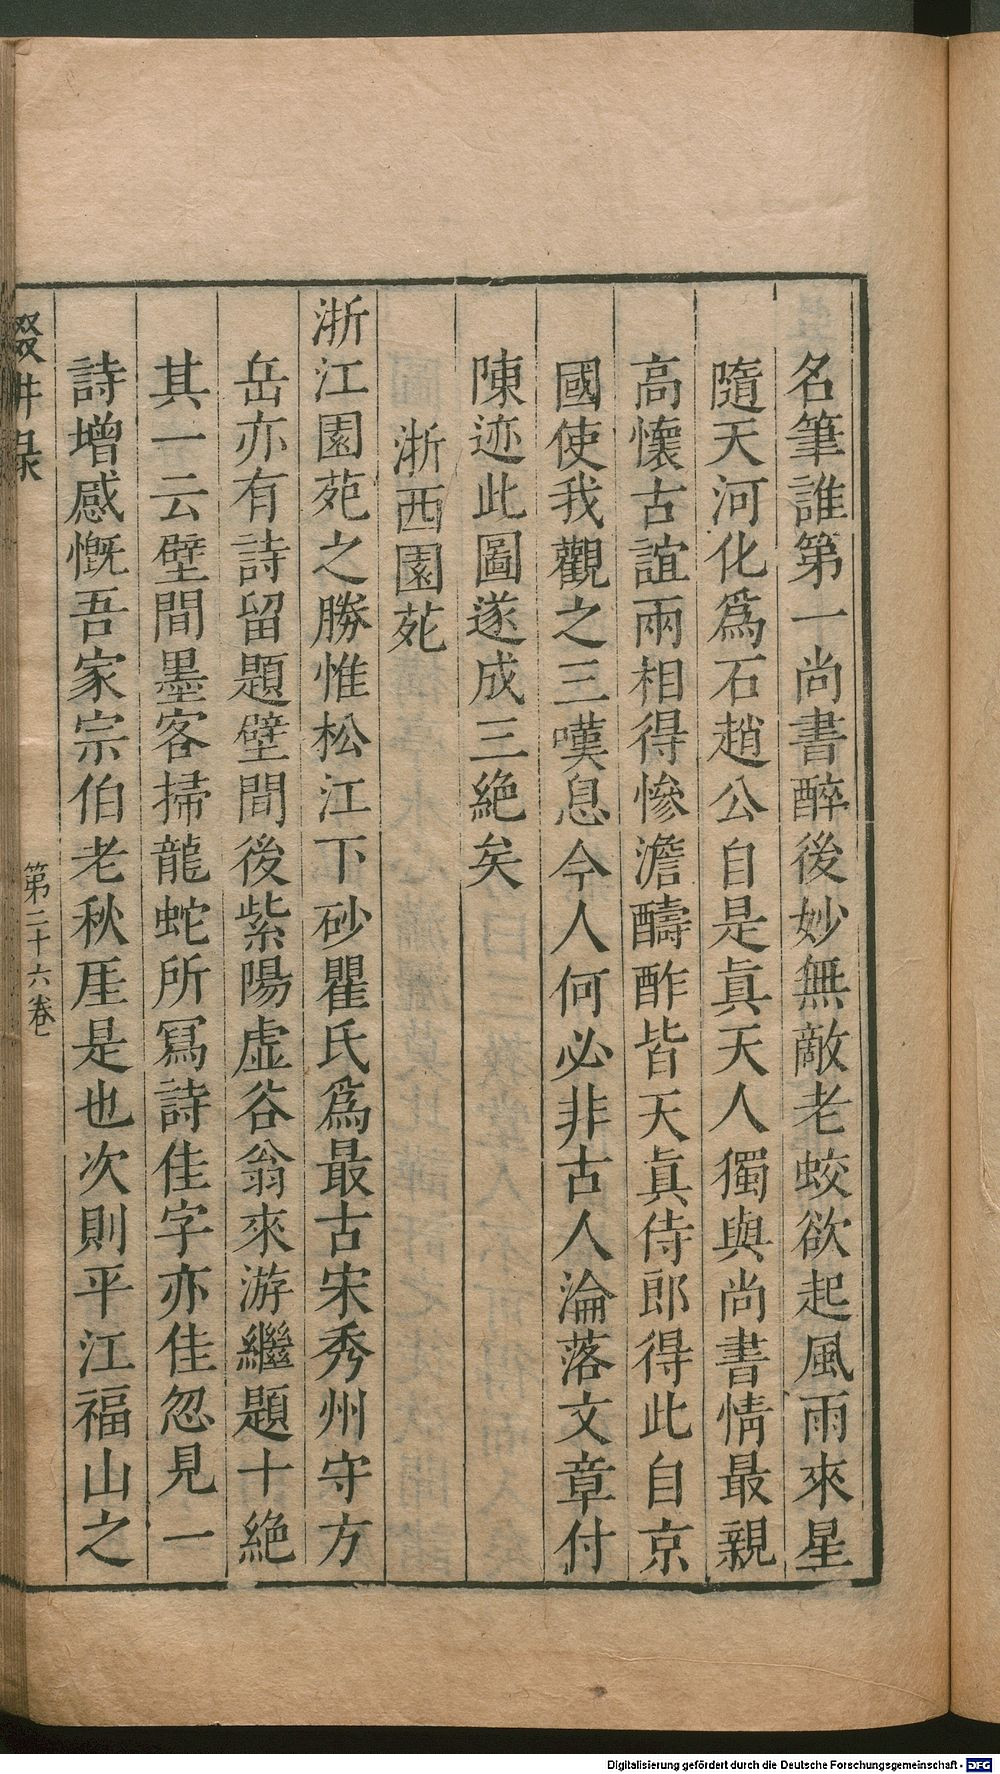 名筆誰第一尚書醉後妙無敵老蛟欲起風雨來星
隨天河化爲石趙公自是眞天人獨與尚書情最親
高懷古誼兩相得慘澹醻酢皆天眞侍郎得此自京
國使我觀之三嘆息今人何必非古人淪落文章付
陳迹此圖遂成三絶矣
浙西園苑
浙江園苑之勝惟松江下砂瞿氏爲最古宋秀州守方
岳亦有詩留題壁間後紫陽虛谷翁來游繼題十絶
其一云壁間墨客掃龍蛇所冩詩佳字亦佳忽見一
詩增感慨吾家宗伯老秋厓是也次則平江福山之
輟耕錄
第二十六卷
Digitalisierung gefördert durch die Deutsche Forschungsgemeinschaft - DFG